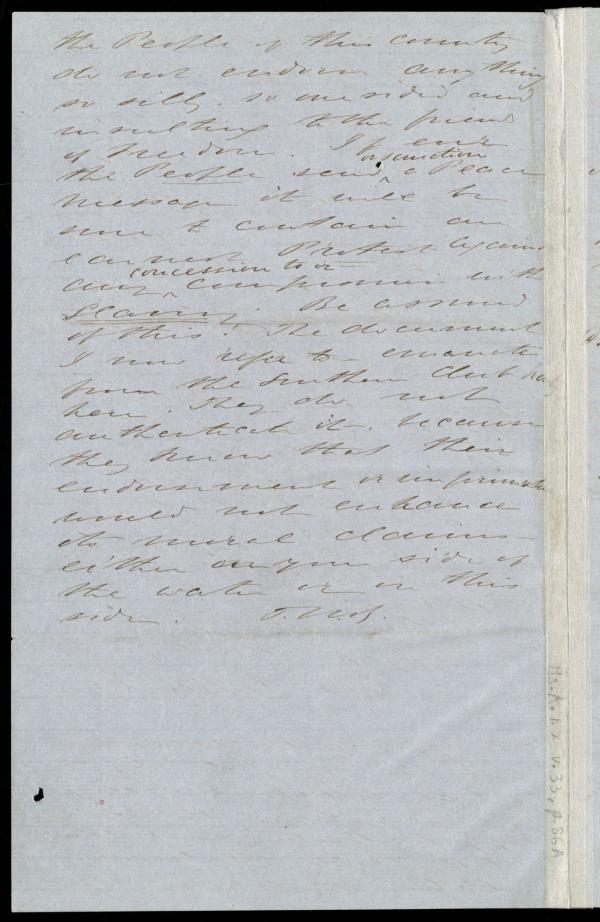 the People of this country
do not endorse any thing
so silly, so one sided and
insulting to the friend
of freedom. If ever
or sanction
the People send ^ a Peace
message it will be
sure to contain an
earnest Protest against
concession to or
any ^ compromise with
Slavery. Be assured
of this. The document
I now refer to emanates
from the Southern Club
here. They do not
authenticate it, because
they know that their
endorsement or
would not enhance
its moral claims
either on your side of
the water or on this
side.
Ms.A.1.2 v.33, p.86A